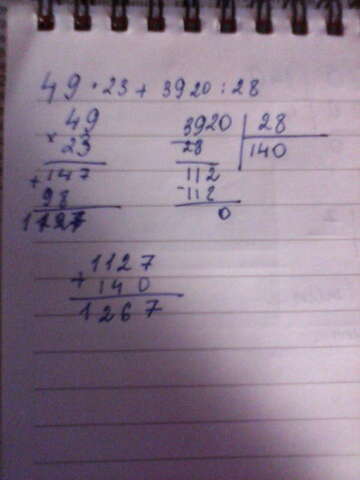 49 · 23 + 3920 : 28
49
× 23
147
+ 98
1127
3920 | 28
28 | 140
112
-112
0
1127
+ 140
1267